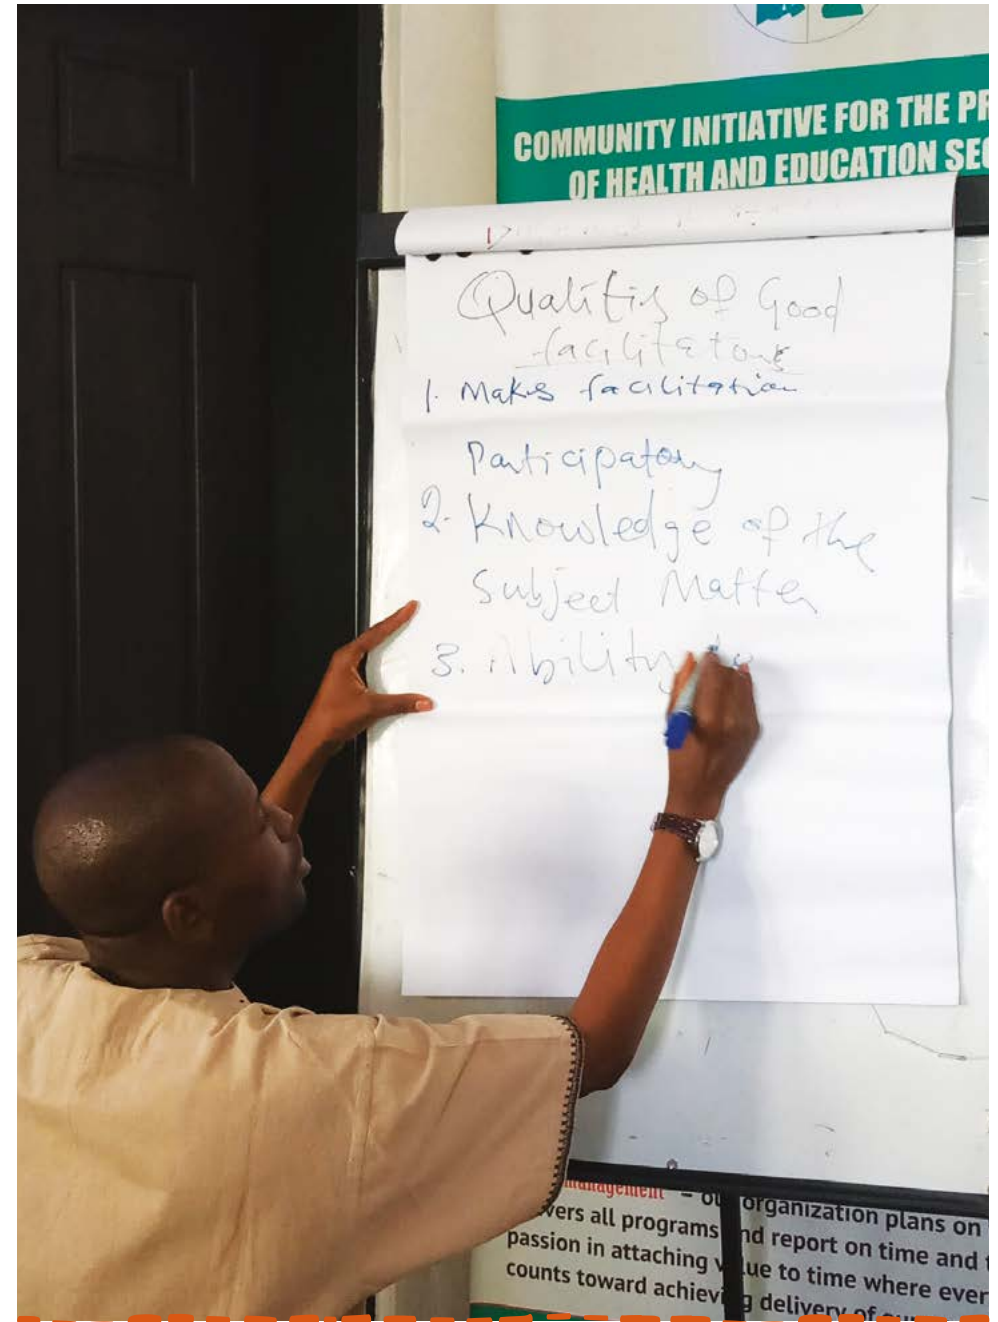 COMMUNITY INITIATIVE FOR THE PR
OF HEALTH AND EDUCATION SEC
Qualitis of Good
facilitators
1. Makes facilitation
Participatory
2. Knowledge of the
Subject Matter
3. Ability to
management – ou organization plans on
vers all programs nd report on time and
passion in attaching v ue to time where ever
counts toward achievi g delivery of